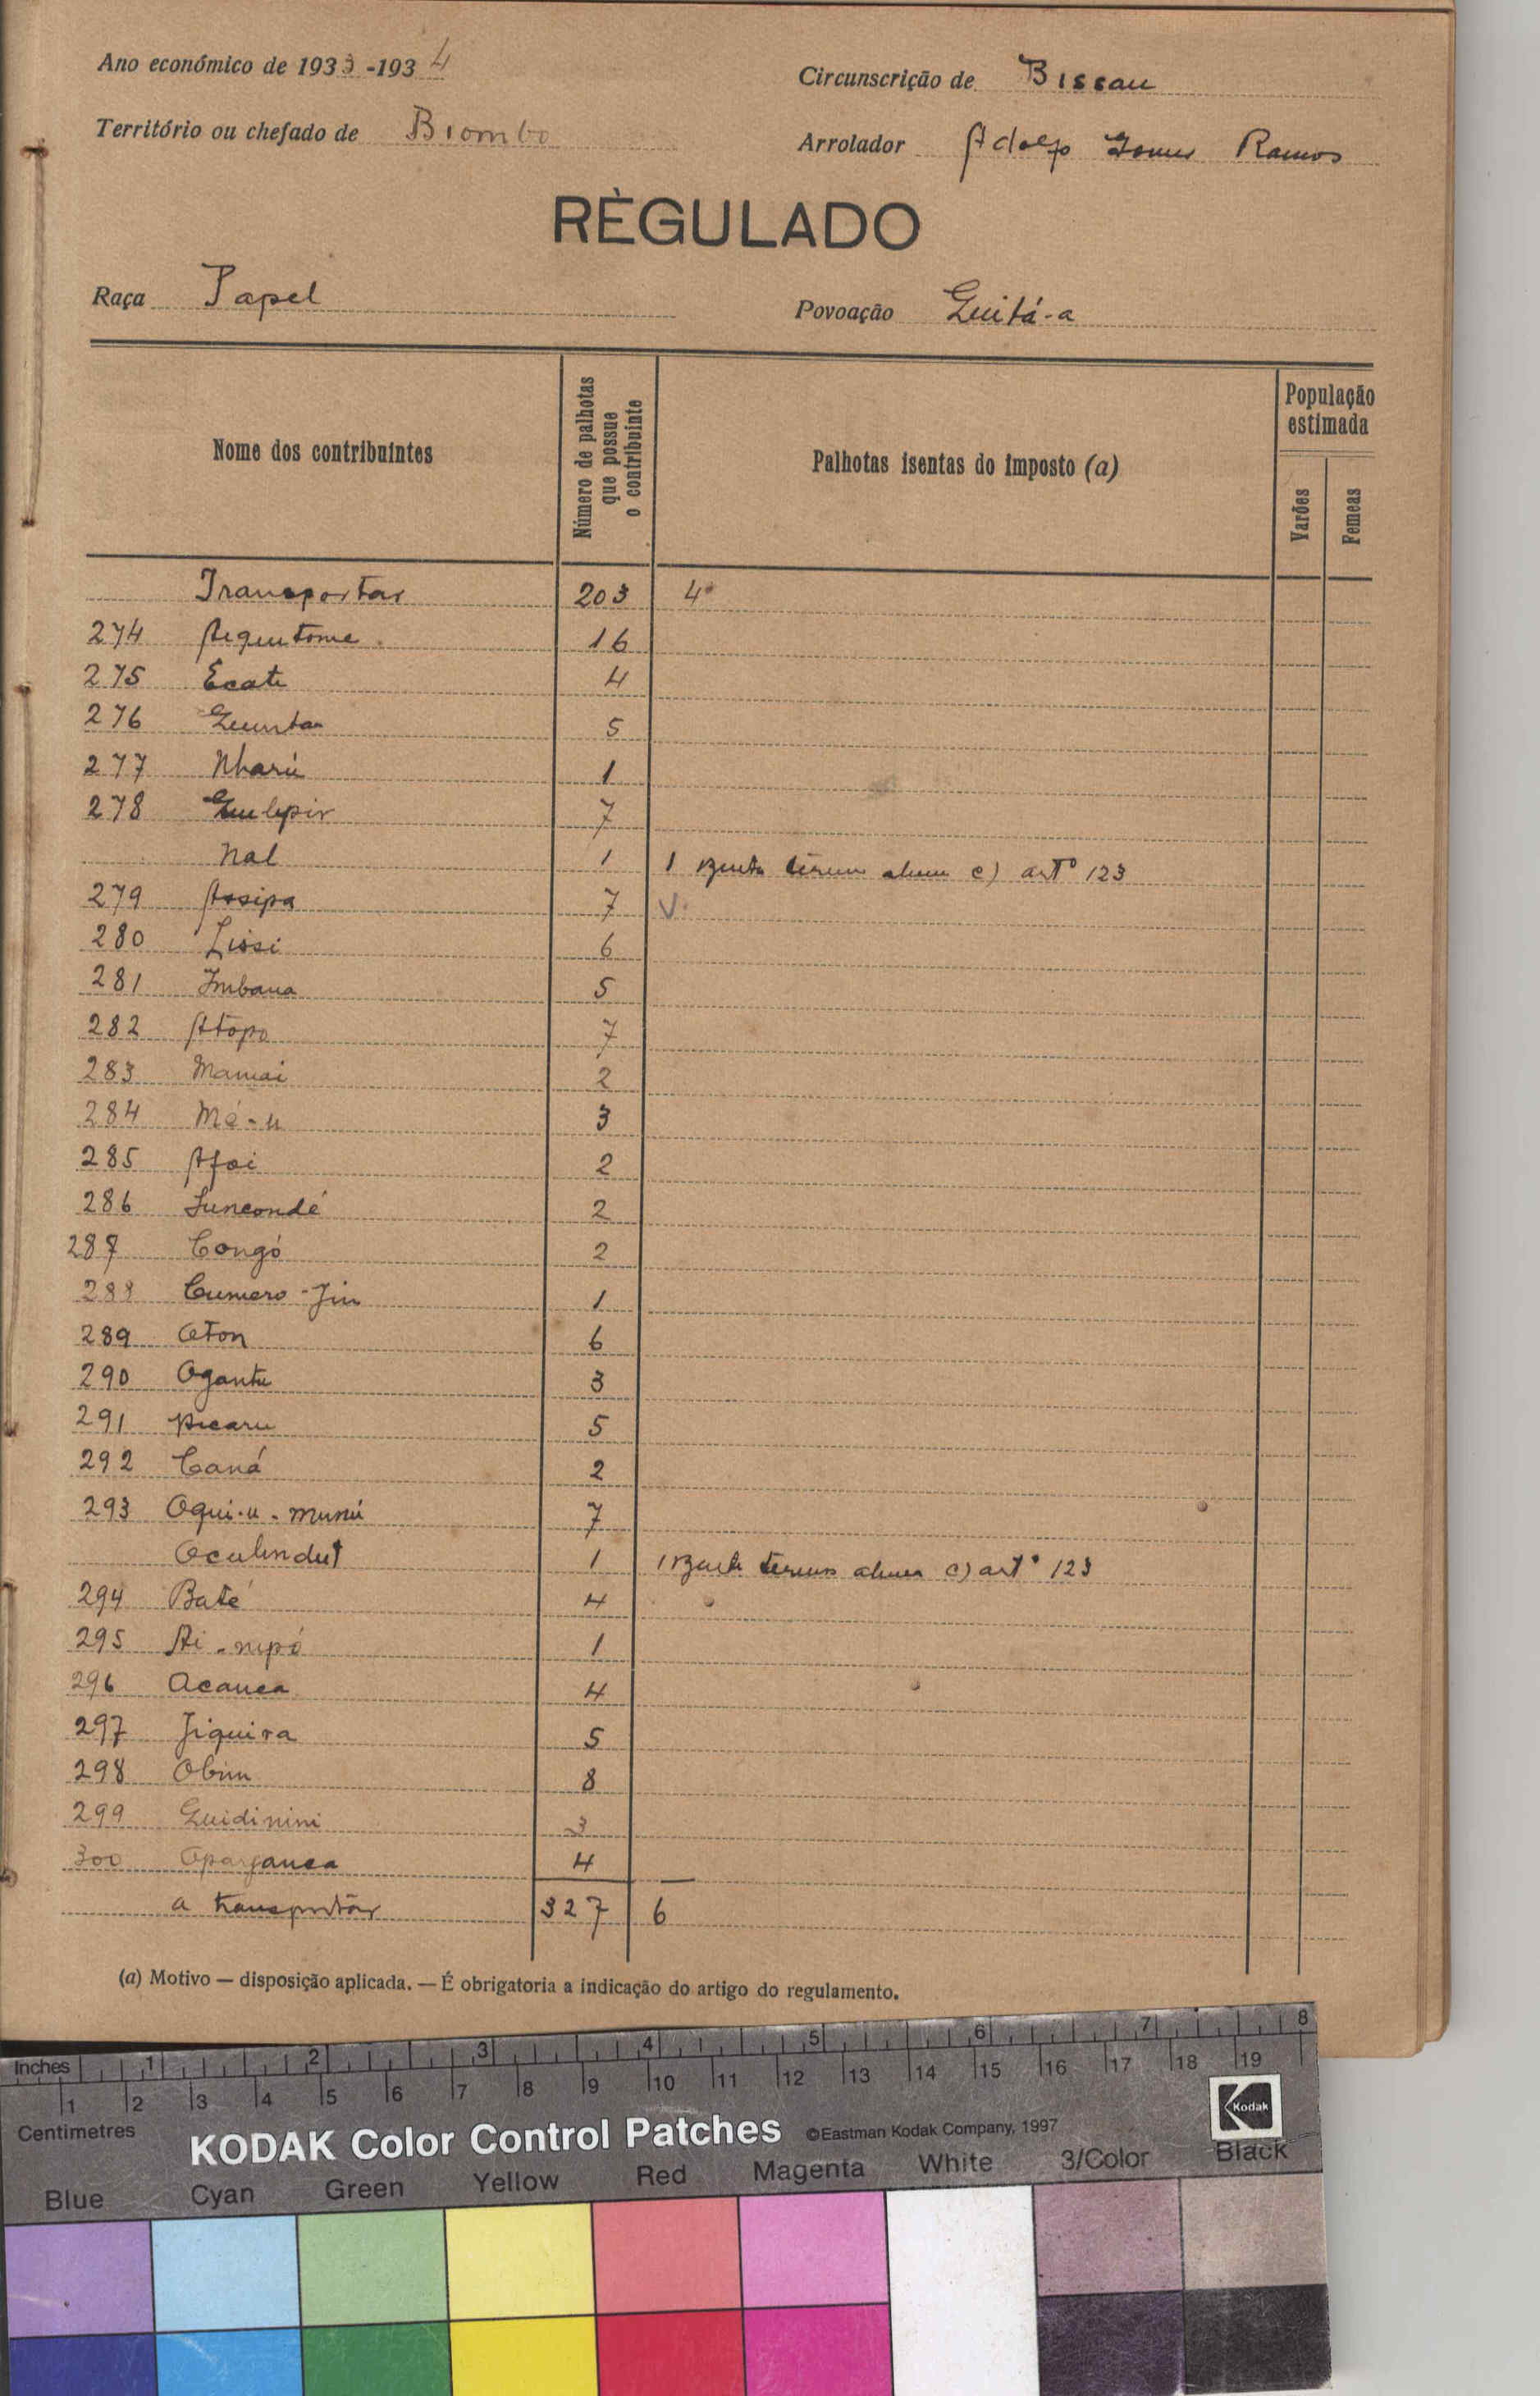 Ano económico de 1933-1934
Circunscrição de Bissau
Território ou chefado de Biombo
Arrolador Adolfo Gomes Ramos
RÈGULADO
Raça Papel
Povoação Guitá-a
Nome dos contribuintes
Número de palhotas que possue o contribuinte
Palhotas isentas do imposto (a)
População estimada
Varões
Femeas
Transportar 203 4
274 16
275 Ecate 4
276 5
277 Nharú 1
278 7
Nal 1 1 c) artº 123
279 Assipa 7 V
280 Lissi 6
281 Imbana 5
282 Atopo 7
283 Mamai 2
284 Mé-u 3
285 Afoi 2
286 Suncondé 2
287 Congó 2
288 Cumero-Jin 1
289 Oton 6
290 Ogante 3
291 5
292 Caná 2
293 Oqui-u-munú 7
1 1 c) artº 123
294 Baté 4
295 1
296 Acanca 4
297 Jiquira 5
298 Obim 8
299 Guidinini 3
300 4
a transportar 327 6
(a) Motivo — disposição aplicada. — É obrigatoria a indicação do artigo do regulamento.
Inches 1 2 3 4 5 6 7 8
1 2 3 4 5 6 7 8 9 10 11 12 13 14 15 16 17 18 19
Centimetres
KODAK Color Control Patches ©Eastman Kodak Company, 1997 Kodak
Blue Cyan Green Yellow Red Magenta White 3/Color Black